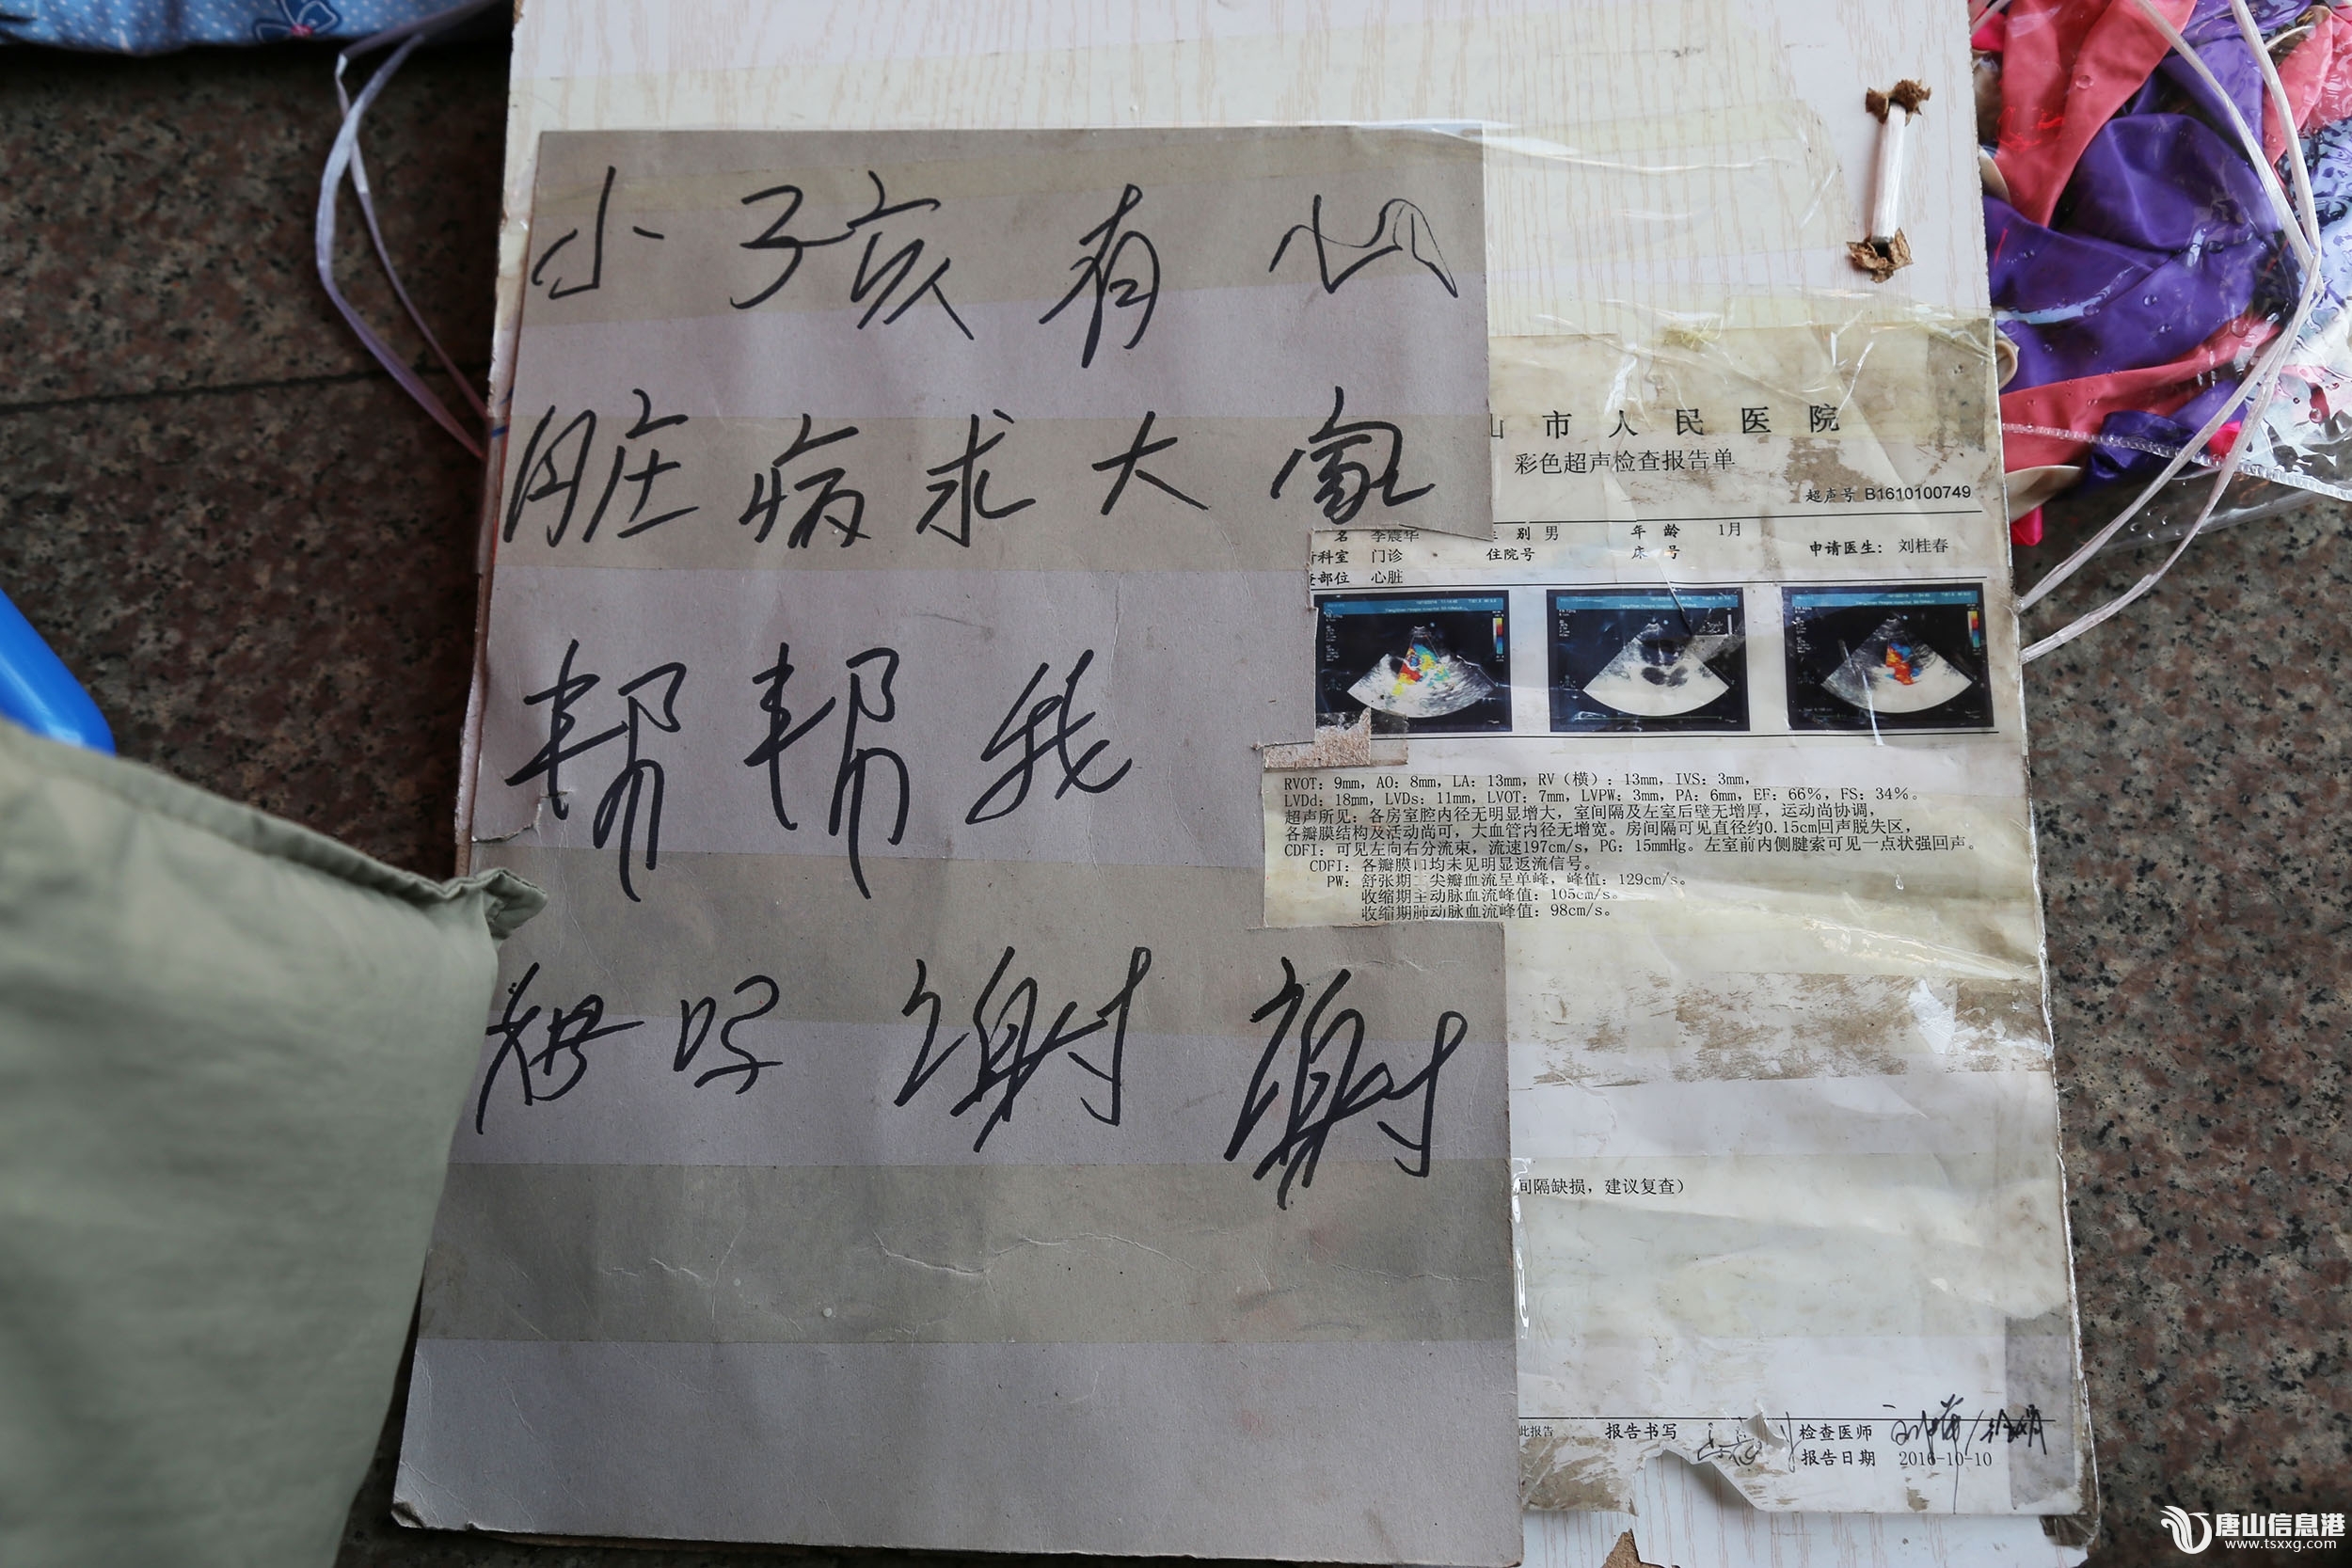 小孩有心
脏病求大家
帮帮我
好 谢谢
山市人民医院
彩色超声检查报告单
超声号 B1610100749
名 李震华 别 男 年龄 1月
科室 门诊 住院号 床号 申请医生: 刘桂春
部位 心脏
RVOT: 9mm, AO: 8mm, LA: 13mm, RV (横) : 13mm, IVS: 3mm,
LVDd: 18mm, LVDs: 11mm, LVOT: 7mm, LVPW: 3mm, PA: 6mm, EF: 66%, FS: 34%。
超声所见: 各房室腔内径无明显增大, 室间隔及左室后壁无增厚, 运动尚协调,
各瓣膜结构及活动尚可, 大血管内径无增宽。房间隔可见直径约0.15cm回声脱失区,
CDFI: 可见左向右分流束, 流速197cm/s, PG: 15mmHg。左室前内侧腱索可见一点状强回声。
CDFI: 各瓣膜口均未见明显返流信号。
PW: 舒张期二尖瓣血流呈单峰, 峰值: 129cm/s。
收缩期主动脉血流峰值: 105cm/s。
收缩期肺动脉血流峰值: 98cm/s。
间隔缺损, 建议复查)
此报告 报告书写 检查医师
报告日期 2016-10-10
唐山信息港
www.tsxxg.com